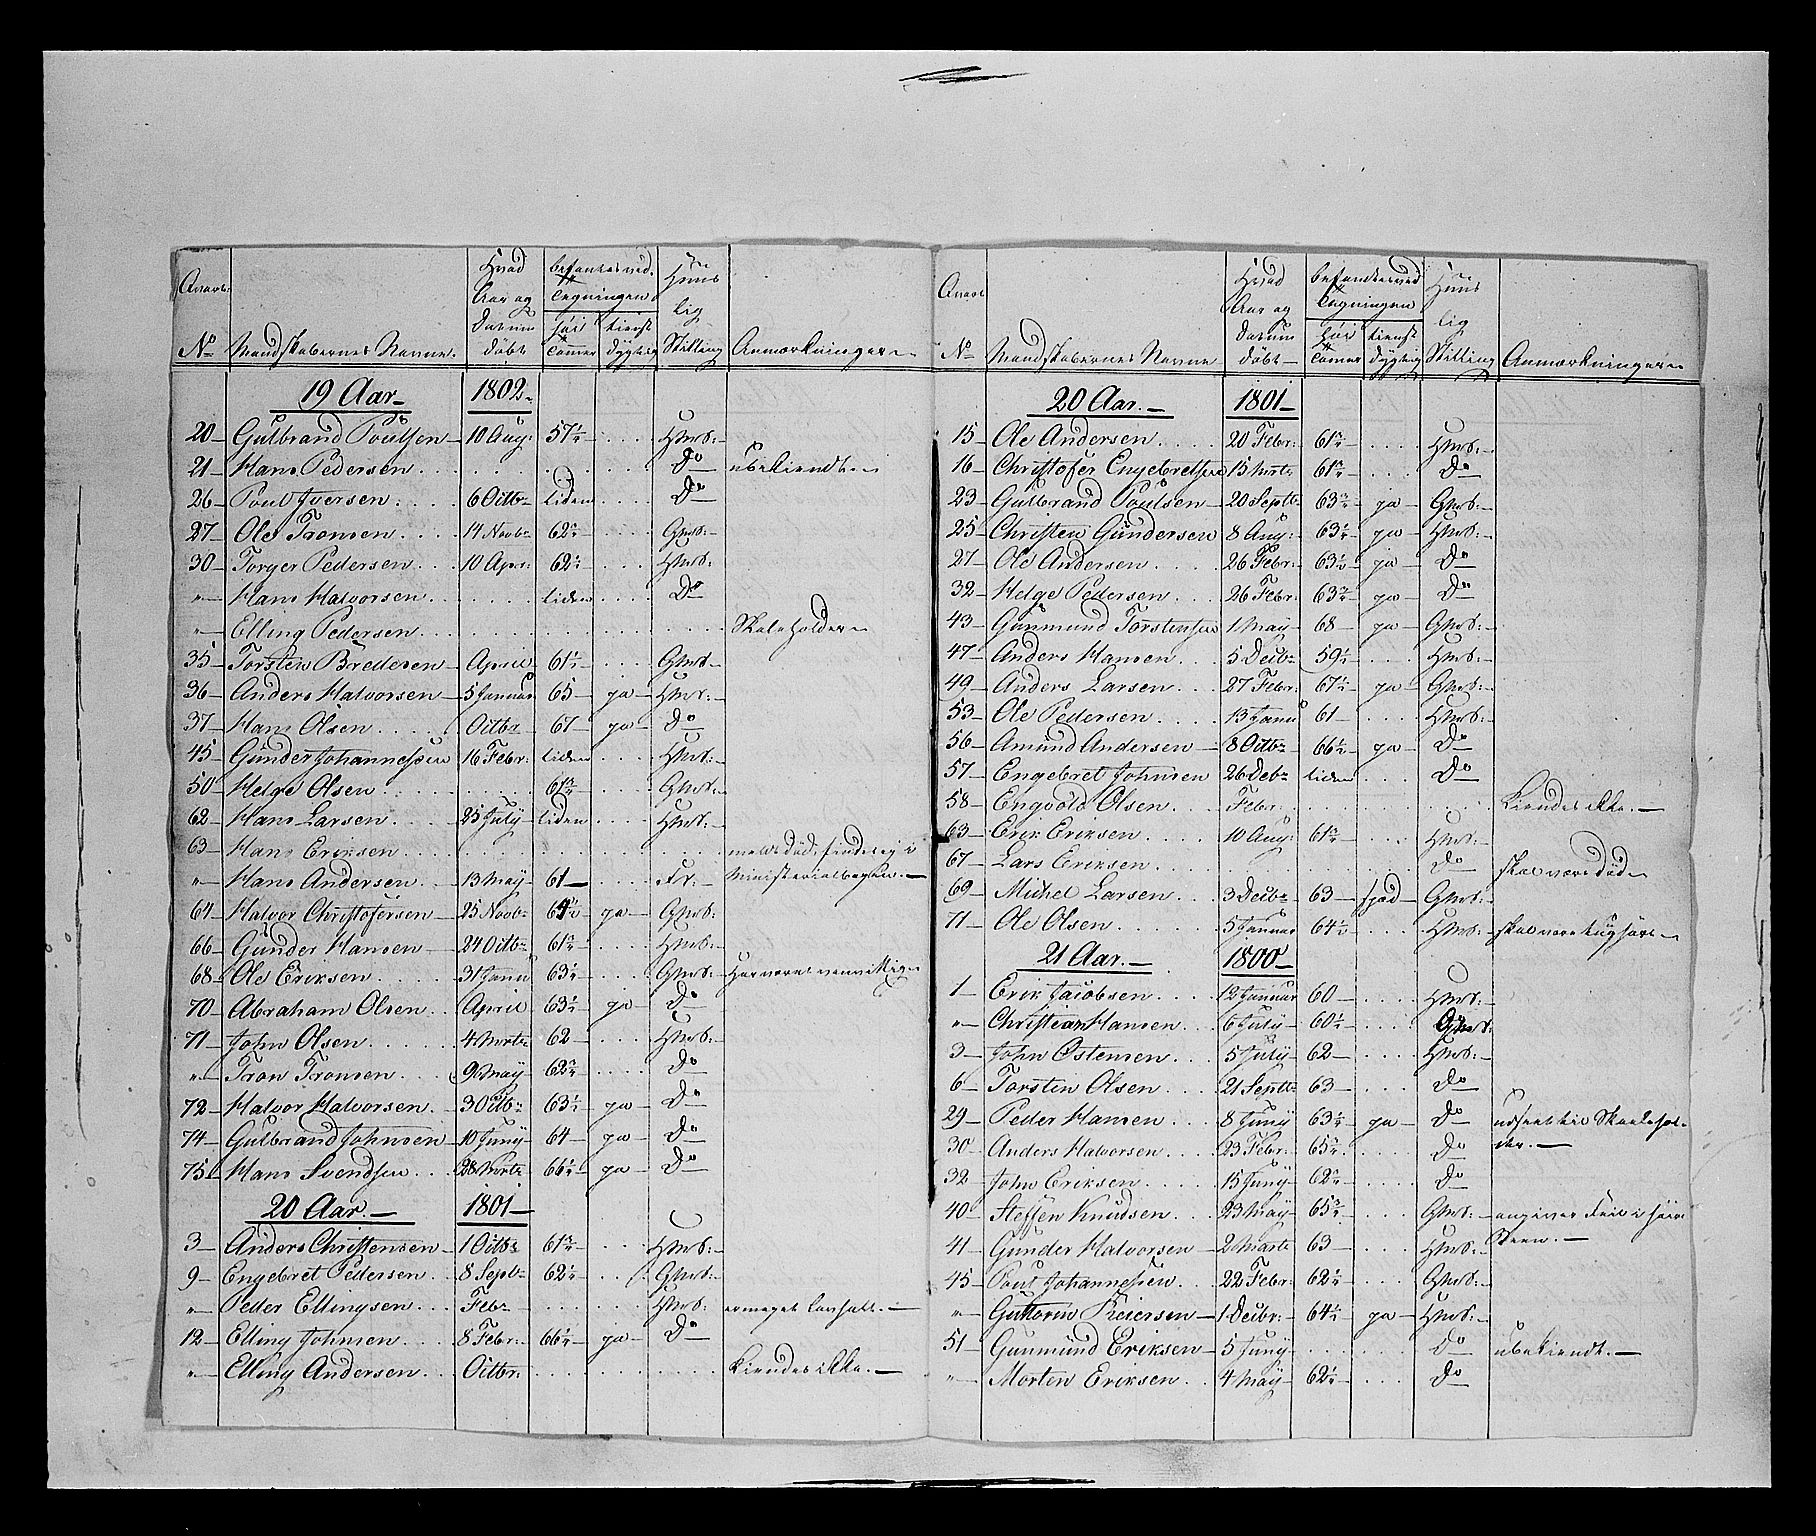 Qvart:
No
Mandskabernes Navne.
Hvad
Aar og
Datum
Døbt
befantes ved
Lægningen
høi
Tommer
tienst
dygtig
Huus
lig
Stilling
Anmærkninger
19 Aar 1802
20 Gulbrand Poulsen 10 Aug: 57½ Hmd:
21 Hans Pedersen Do ubekiendt
26 Poul Iversen 6 Octbr liden Do
27 Ole Tronsen 14 Novbr 62 Gmd:
30 Torger Pedersen 10 Apr: 62½ Hmd:
" Hans Halvorsen liden Do
" Elling Pedersen Skoleholder
35 Torsten Bredesen April 61½ Gmd:
36 Anders Halvorsen 5 Januar 65 ja Hmd:
37 Hans Olsen Octbr 67 ja Do
45 Gunder Johannessen 16 Febr: liden Hmd:
50 Helge Olsen 61¾ Gmd:
62 Hans Larsen 25 July liden Hmd:
63 Hans Eriksen meldt død, findes ej i
" Hans Andersen 13 May 61 Fr: Ministerialbogen.
64 Halvor Christofersen 25 Novbr ja Gmd:
66 Gunder Hansen 24 Octbr 61¾ Hmd:
68 Ole Eriksen 31 Janu 63½ Gmd: Har været vanvittig
70 Abraham Olsen April 63½ ja Do
71 John Olsen 4 Marts 62 Hmd:
" Tron Tronsen 9 May 62¾ Do
72 Halvor Halvorsen 3 Octbr 63½ ja Do
74 Gulbrand Johnsen 10 Juny 64 ja Do
75 Hans Svendsen 28 Marts 66½ ja Do
20 Aar. 1801
3 Anders Christensen 1 Octbr 61¾ Hmd:
9 Engebret Pedersen 8 Septbr 62½ Gmd:
" Peder Ellingsen Febr Hmd: er meget lavhalt.
12 Elling Johnsen 8 Febr: 66½ ja Do
" Elling Andersen Octbr: kiendes ikke.
Qvart
No
Mandskabernes Navne
Hvad
Aar og
Datum
døbt
befandtes ved
Lægningen
høi
Tommer
tienst
dygtig
Huus
lig
Stilling
Anmærkninger
20 Aar. 1801
15 Ole Andersen 20 Febr: 61¾ Hmd:
16 Christofer Engebretsen 15 Marts 61¾ Do
23 Gulbrand Poulsen 20 Septbr 63¾ ja Gmd:
25 Christen Gundersen 8 Aug: 63½ ja Hmd:
27 Ole Andersen 26 Febr: 63½ ja Do
32 Helge Pedersen 26 Febr: 63¾ ja Do
43 Gunmund Torstensen 1 May 68 ja Gmd:
47 Anders Hansen 5 Decbr 59½ Hmd:
49 Anders Larsen 27 Febr: 67½ ja Gmd:
53 Ole Pedersen 13 Janu 61 Hmd:
56 Amund Andersen 8 Octbr 66½ ja Do
57 Engebret Johnsen 26 Debr liden Do
58 Engvold Olsen Febr: kiendes ikke.
63 Erik Eriksen 10 Aug: 61¾ Hmd:
67 Lars Eriksen Do skal være død
69 Michel Larsen 3 Decbr 63 Gmd:
71 Ole Olsen 5 Januar 64½ Hmd: skal være
21 Aar. 1800
1 Erik Jacobsen 12 Januar 60 Hmd:
" Christian Hansen 6 July 60½ Gmd:
3 John Ostensen 5 July 62 Hmd:
6 Torsten Olsen 21 Septbr 63 Do
29 Peder Hansen 8 Juny 63½ ja Do udseet til Skoelehol-
der.
30 Anders Halvorsen 23 Febr: 65¾ Do
32 John Eriksen 15 Juny 62¾ Do
40 Steffen Knudsen 23 May 65¾ Gmd: angiver Feil i høire
Been.
41 Gunder Halvorsen 2 Marts 63 Hmd:
45 Poul Johannessen 22 Febr: 62½ Gmd:
" Guttorm Reiersen 1 Decbr: 64½ ja Hmd:
51 Gunmund Eriksen 5 Juny Do ubekiendt.
" Morten Eriksen 4 May 62½ Do